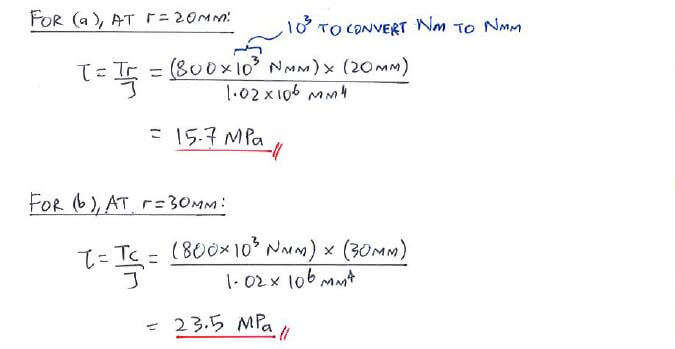 FOR (a), AT r=20MM:
10³ TO CONVERT NM TO NMM
τ = Tr/J = (800×10³ NMM) × (20MM) / 1.02×10⁶ MM⁴
= 15.7 MPa
FOR (b), AT r=30MM:
τ = Tc/J = (800×10³ NMM) × (30MM) / 1.02×10⁶ MM⁴
= 23.5 MPa